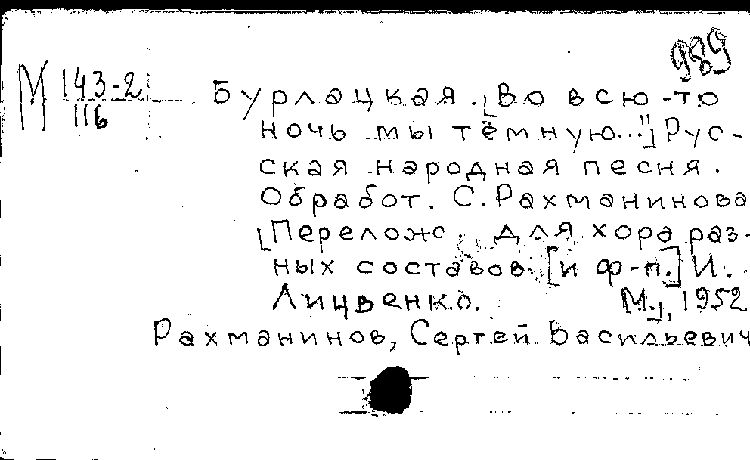 989
М 143-2
116
Бурлацкая. [Во всю-то
ночь мы тёмную..."] Рус-
ская народная песня.
Обработ. С. Рахманинова
[Перелож. для хора раз-
ных составов [и ф-п.] И.
Лицвенко. М.], 1952
Рахманинов, Сергей Васильевич